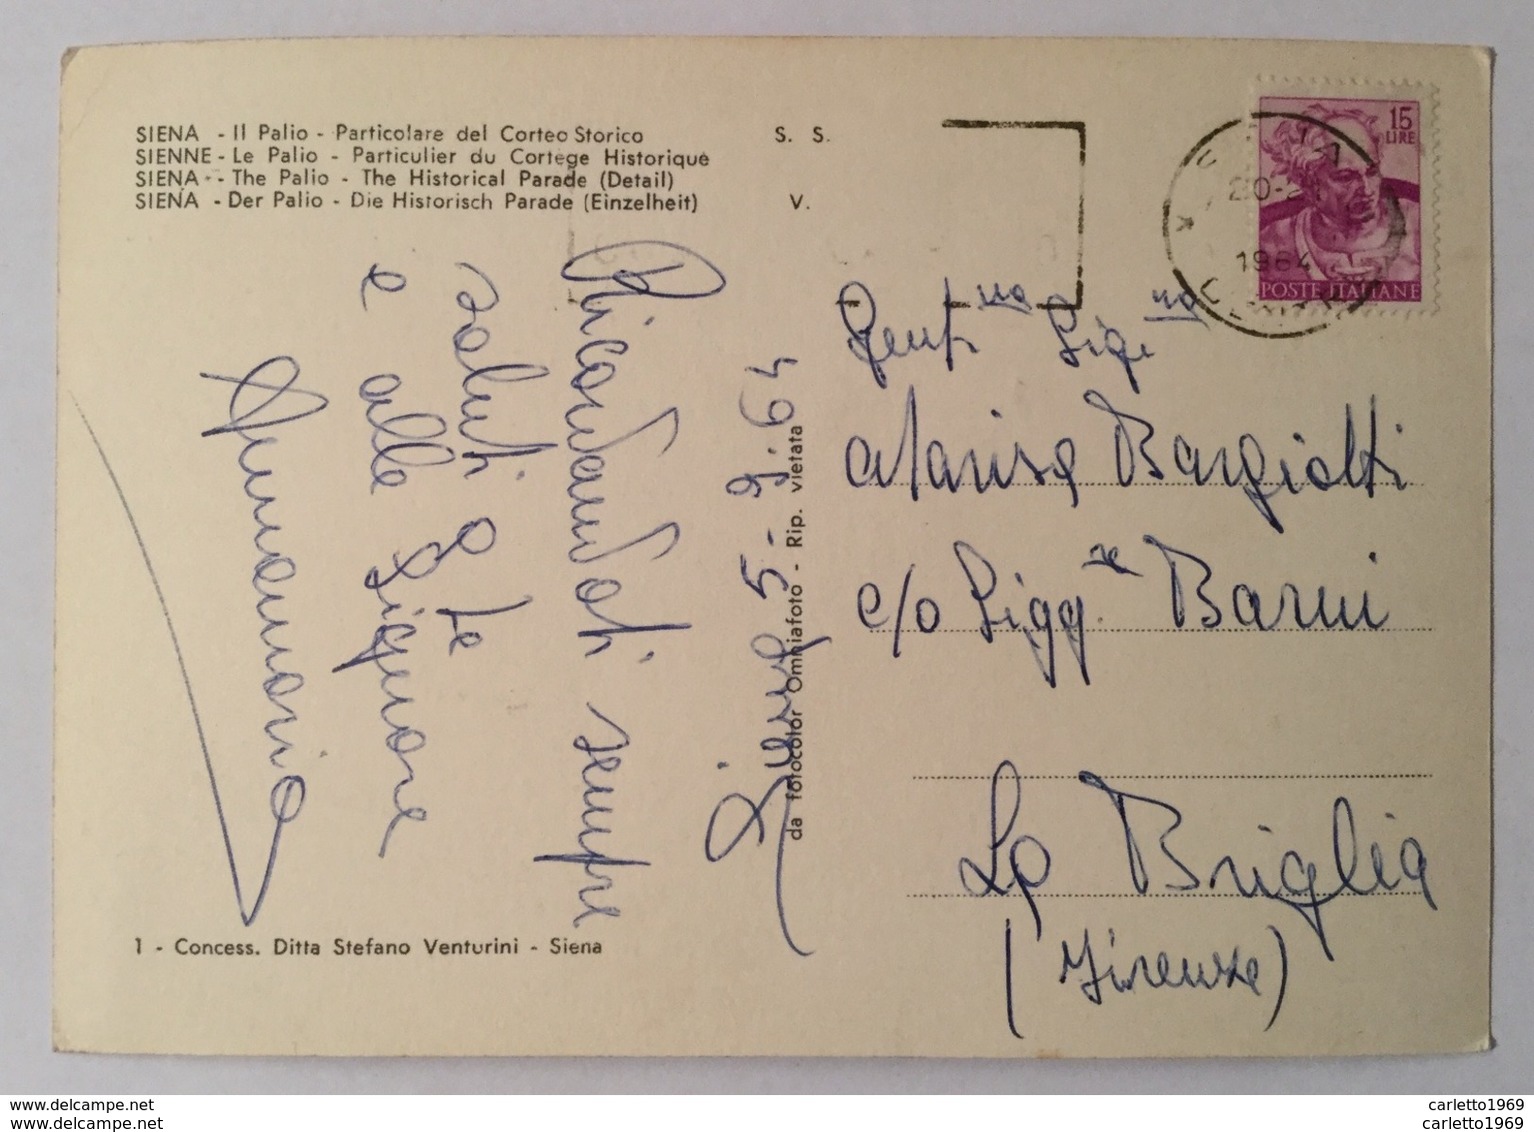 SIENA - Il Palio - Particolare del Corteo Storico S. S.
SIENNE - Le Palio - Particulier du Cortège Historique
SIENA - The Palio - The Historical Parade (Detail)
SIENA - Der Palio - Die Historisch Parade (Einzelheit) V.
15
LIRE
20-21
1964
POSTE ITALIANE
Siena 5-9-64
Ricordandoti sempre
saluti a te
e alle Signore
Annamaria
da fotocolor Omniafoto - Rip. vietata
Gent.ma Sig.na
Marisa Bargiotti
c/o Sigg.re Barni
La Briglia
(Firenze)
1 - Concess. Ditta Stefano Venturini - Siena
carletto1969 carletto1969
carletto1969 carletto1969